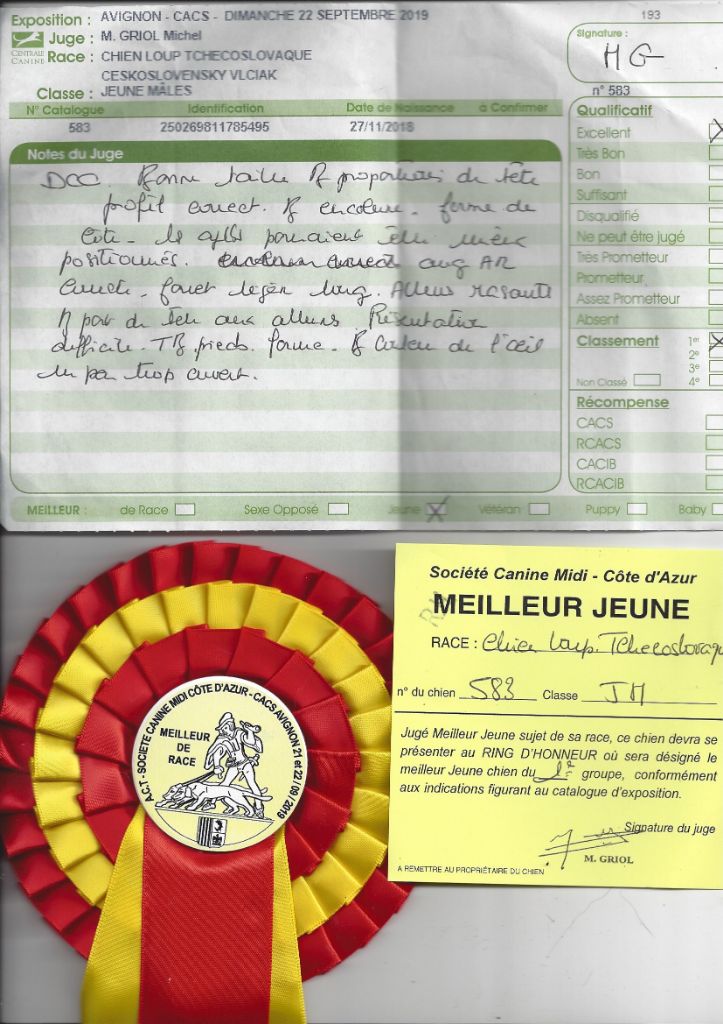 Exposition : AVIGNON - CACS - DIMANCHE 22 SEPTEMBRE 2019
193
Juge : M. GRIOL Michel
CENTRALE CANINE
Race : CHIEN LOUP TCHECOSLOVAQUE
CESKOSLOVENSKY VLCIAK
Classe : JEUNE MÂLES
Signature :
MG
n° 583
N° Catalogue Identification Date de Naissance à Confirmer
583 250269811785495 27/11/2018
Notes du Juge
DCC. Bonne taille B proportions de tête
profil correct. B encolure. forme de
côte. positionnés. AR
léger long. Allures rasante
port de aux allures Présentation
difficile. TB pieds. forme. B couleur de l'œil
un peu trop ouvert.
Qualificatif
Excellent X
Très Bon
Bon
Suffisant
Disqualifié
Ne peut être jugé
Très Prometteur
Prometteur
Assez Prometteur
Absent
Classement 1er X
2e
3e
Non Classé 4e
Récompense
CACS
RCACS
CACIB
RCACIB
MEILLEUR : de Race Sexe Opposé Jeune X Vétéran Puppy Baby
Société Canine Midi - Côte d'Azur
MEILLEUR JEUNE
RACE : Chien Loup Tchecoslovaqu
n° du chien 583 Classe JM
Jugé Meilleur Jeune sujet de sa race, ce chien devra se
présenter au RING D'HONNEUR où sera désigné le
meilleur Jeune chien du 1er groupe, conformément
aux indications figurant au catalogue d'exposition.
Signature du juge
M. GRIOL
A REMETTRE AU PROPRIÉTAIRE DU CHIEN
A.C.T - SOCIETE CANINE MIDI CÔTE D'AZUR - CACS AVIGNON 21 et 22 / 09 / 2019
MEILLEUR
DE
RACE